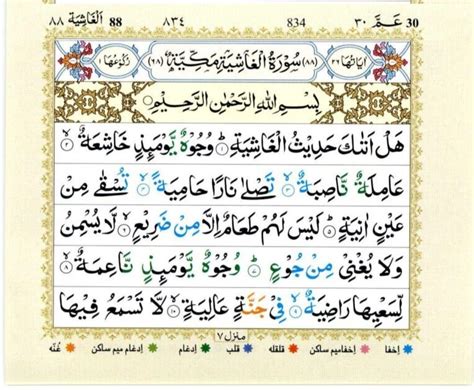 عَمَّ ٣٠ 30 834 ٨٣٤ 88 اَلْغَاشِيَة ٨٨
اٰيَاتُهَا ٢٦ (٨٨) سُوْرَةُ الْغَاشِيَةِ مَكِّيَّةٌ (٦٨) رُكُوْعُهَا ١
بِسْمِ اللهِ الرَّحْمٰنِ الرَّحِيْمِ
هَلْ اَتٰىكَ حَدِيْثُ الْغَاشِيَةِ ۝١ وُجُوْهٌ يَّوْمَىِٕذٍ خَاشِعَةٌ ۝٢
عَامِلَةٌ نَّاصِبَةٌ ۝٣ تَصْلٰى نَارًا حَامِيَةً ۝٤ تُسْقٰى مِنْ
عَيْنٍ اٰنِيَةٍ ۝٥ لَيْسَ لَهُمْ طَعَامٌ اِلَّا مِنْ ضَرِيْعٍ ۝٦ لَّا يُسْمِنُ
وَلَا يُغْنِيْ مِنْ جُوْعٍ ۝٧ وُجُوْهٌ يَّوْمَىِٕذٍ نَّاعِمَةٌ ۝٨
لِّسَعْيِهَا رَاضِيَةٌ ۝٩ فِيْ جَنَّةٍ عَالِيَةٍ ۝١٠ لَّا تَسْمَعُ فِيْهَا
منزل ٧
اخفا اخفا میم ساكن قلقله قلب ادغام ادغام میم ساكن غنّه